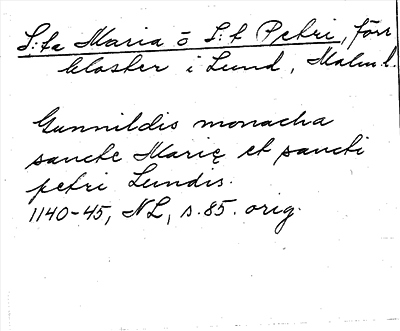 S:ta Maria o S:t Petri, förr
kloster i Lund, Malm.l.
Gunnildis monacha
sancte Marię et sancti
petri Lundis.
1140-45, NL, s.85. orig.